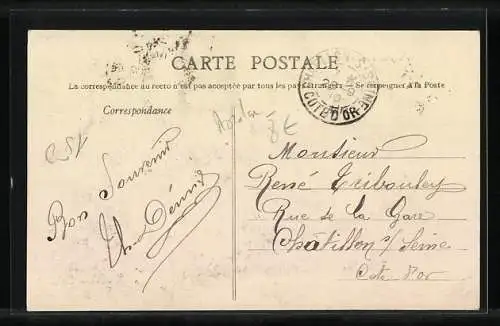 CARTE POSTALE
La correspondance au recto n'est pas acceptée par tous les pays étrangers. Se renseigner à la Poste
Correspondance
CÔTE D'OR
8€
Bon Souvenir
Th. Dénis
Monsieur
René Tribouley
Rue de la Gare
Châtillon s/ Seine
Cote d'or